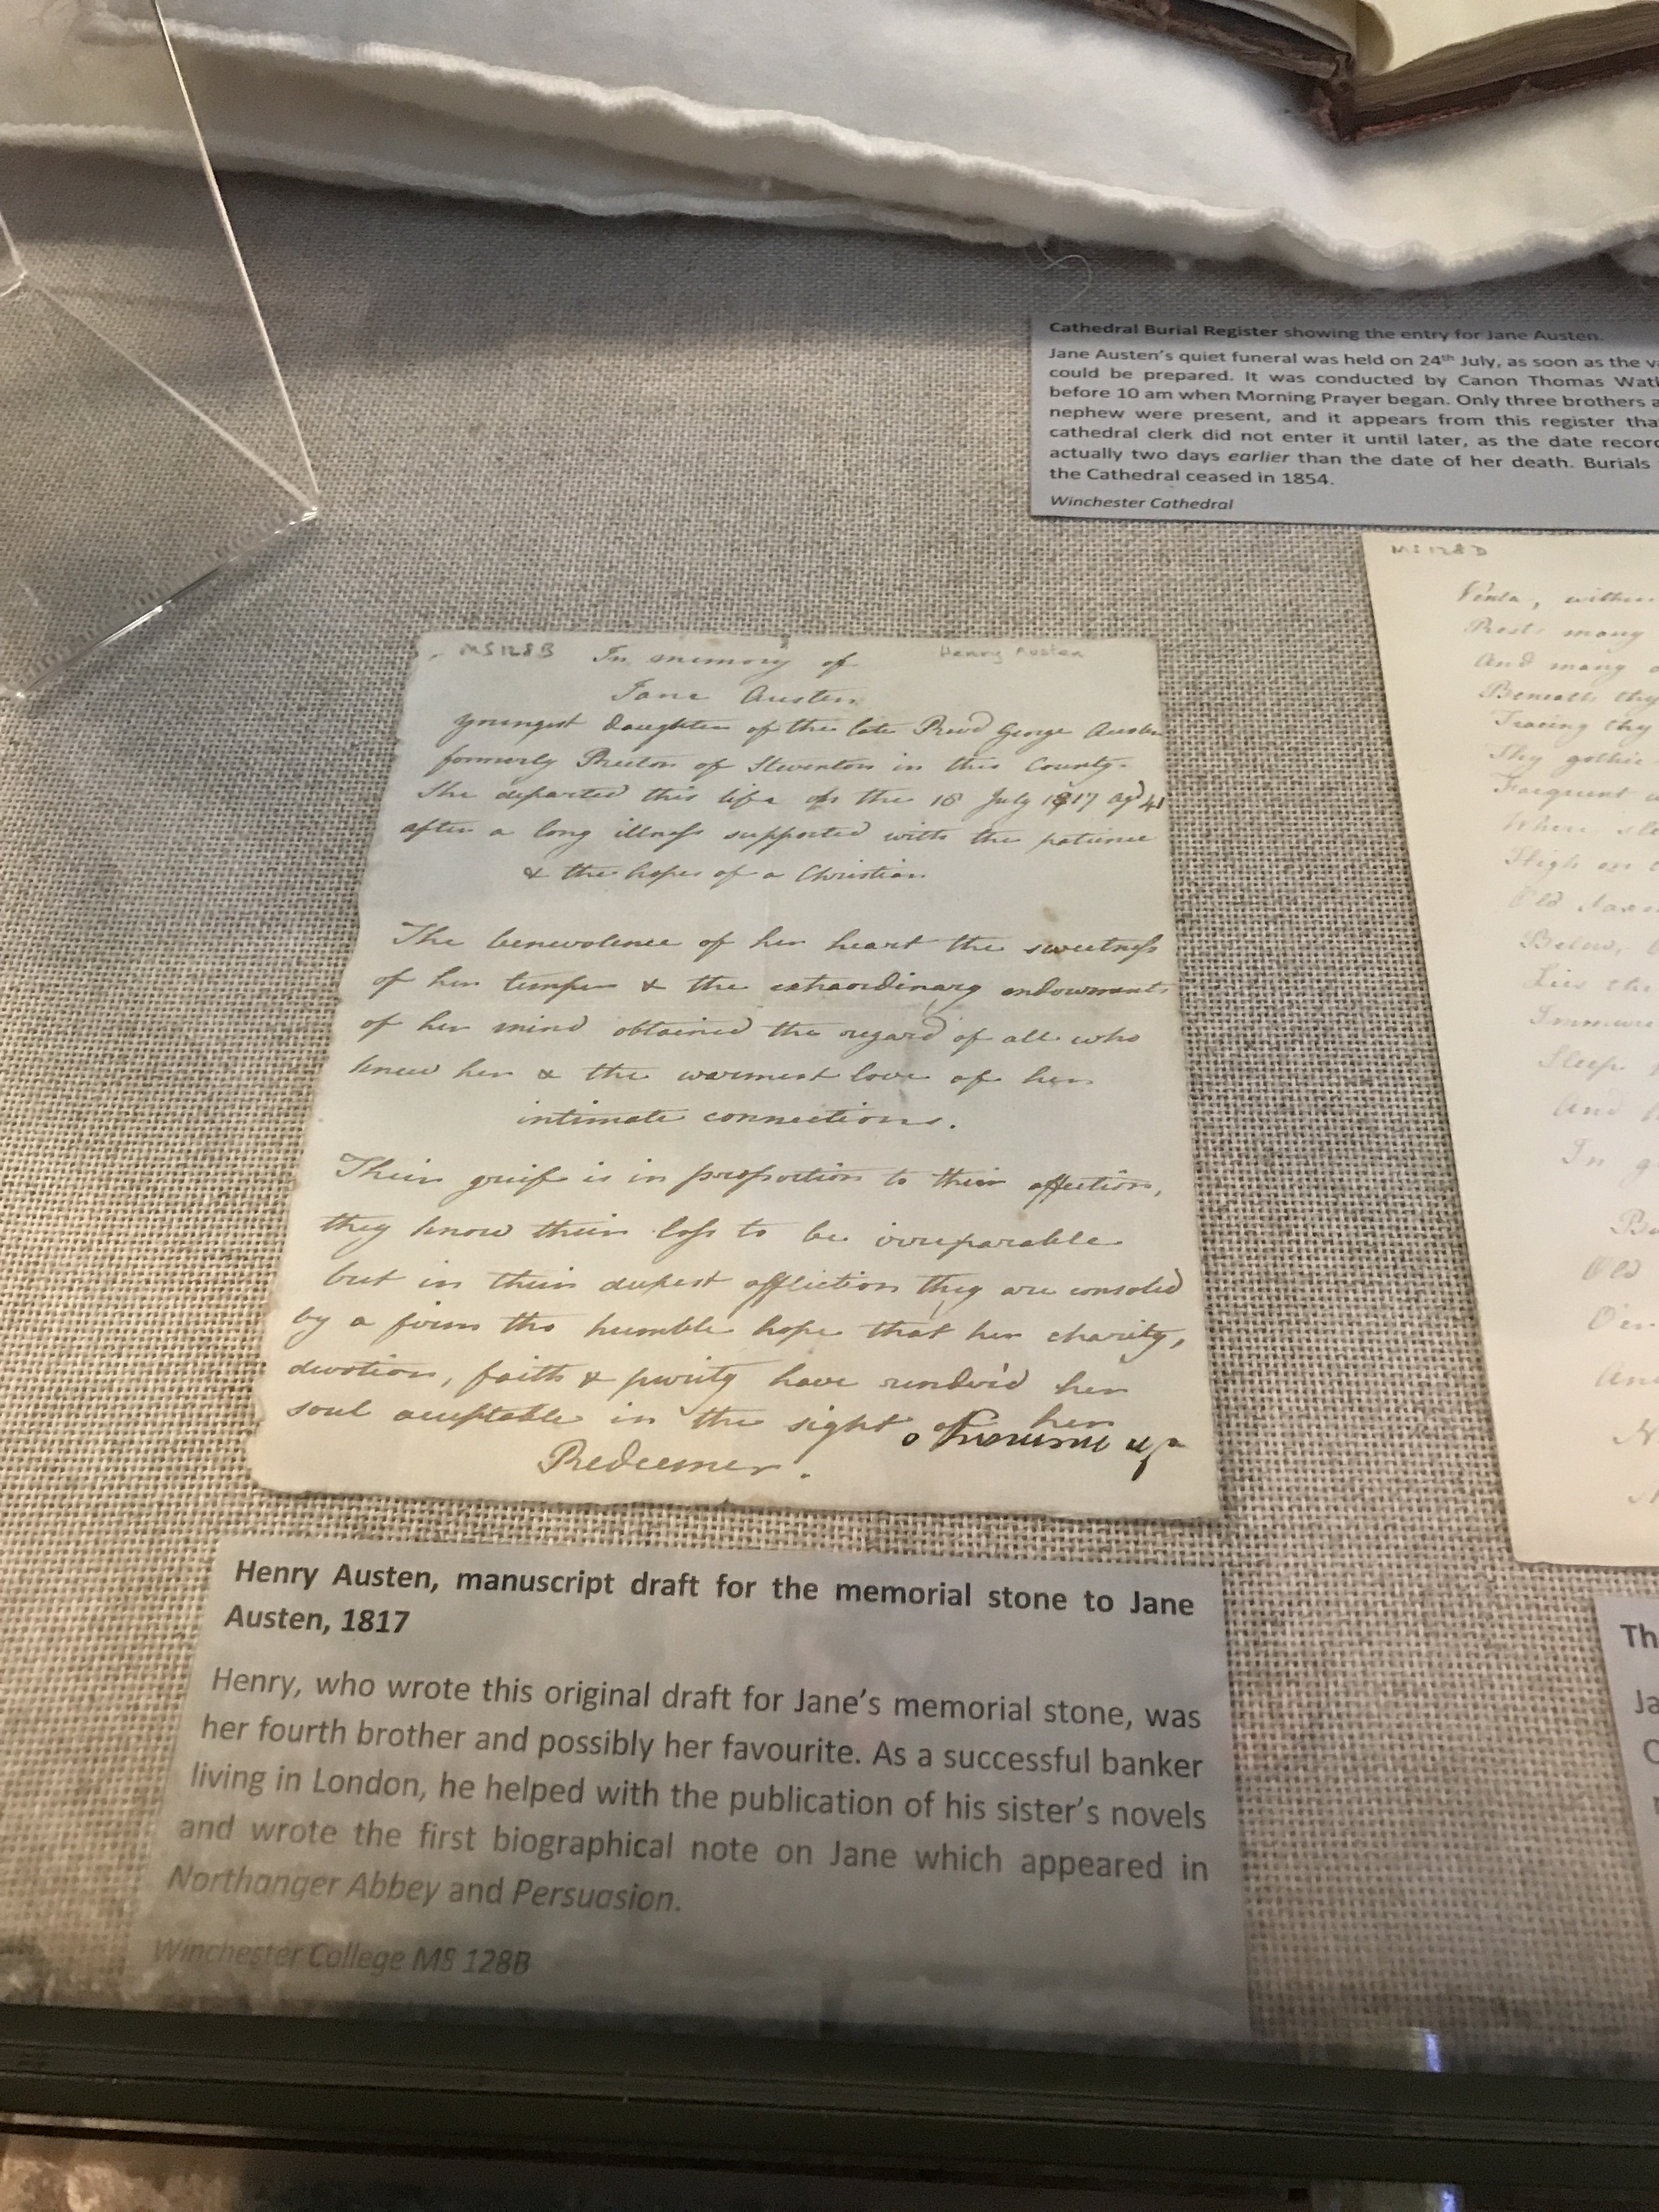 Cathedral Burial Register showing the entry for Jane Austen.
Jane Austen's quiet funeral was held on 24th July, as soon as the
could be prepared. It was conducted by Canon Thomas
before 10 am when Morning Prayer began. Only three brothers
nephew were present, and it appears from this register
cathedral clerk did not enter it until later, as the date
actually two days earlier than the date of her death. Burials
the Cathedral ceased in 1854.
Winchester Cathedral
MS128B
Henry Austen
In memory of
Jane Austen
youngest daughter of the late Revd George Austen
formerly Rector of Steventon in this County.
She departed this life on the 18 July 1817 agd 41
after a long illness supported with the patience
& the hopes of a Christian
The benevolence of her heart the sweetness
of her temper & the extraordinary endowments
of her mind obtained the regard of all who
knew her & the warmest love of her
intimate connections.
Their greif is in proportion to their affection,
they know their loss to be irreparable
but in their deepest affliction they are consoled
by a firm tho humble hope that her charity,
devotion, faith & purity have render'd her
soul acceptable in the sight of her
Redeemer.
MS 128 D
Venta,
Rests many
And many
Beneath thy
Tracing thy
Thy gothic
Frequent
Where
High on
Old
Below,
Lies the
Sleep
And
In
Old
O'er
Henry Austen, manuscript draft for the memorial stone to Jane
Austen, 1817
Henry, who wrote this original draft for Jane's memorial stone, was
her fourth brother and possibly her favourite. As a successful banker
living in London, he helped with the publication of his sister's novels
and wrote the first biographical note on Jane which appeared in
Northanger Abbey and Persuasion.
Winchester College MS 128B